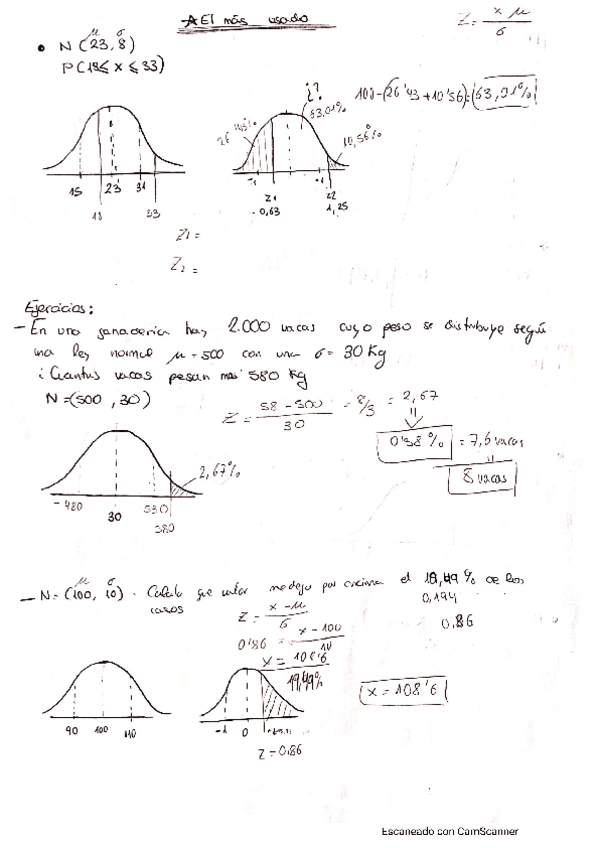 El más usado
Z = x μ / σ
μ σ
N (23, 8)
P(18 ≤ x ≤ 33)
¿?
100-(26'43+10'56)=63,01%
63,01%
26'43%
10,56%
15 23 31
18 33
-1 1
Z1 Z2
-0,63 1,25
Z1 =
Z2 =
Ejercicios:
- En una ganaderia hay 2.000 vacas cuyo peso se distribuye según
una ley normal μ=500 con una σ= 30 Kg
¿Cuantas vacas pesan mas 580 Kg
N=(500, 30)
Z = 58-500 / 30 = 8/3 = 2,67
0'38% = 7,6 vacas
8 vacas
2,67%
-480 30 530
580
μ σ
- N=(100, 10). Calcula que valor me deja por encima el 19,49% de los
casos
0,194
0,86
Z = x-μ / σ
0'86 = x-100 / 10
x = 108'6
19,49%
x = 108'6
90 100 110
-1 0
Z=0.86
Escaneado con CamScanner